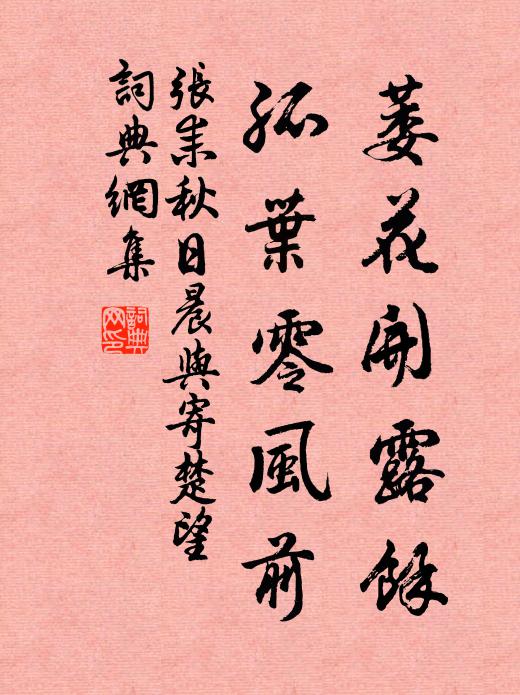 萎花開露餘
孤葉零風前
張耒秋日晨興寄楚望
詞典網集
詞典
网印